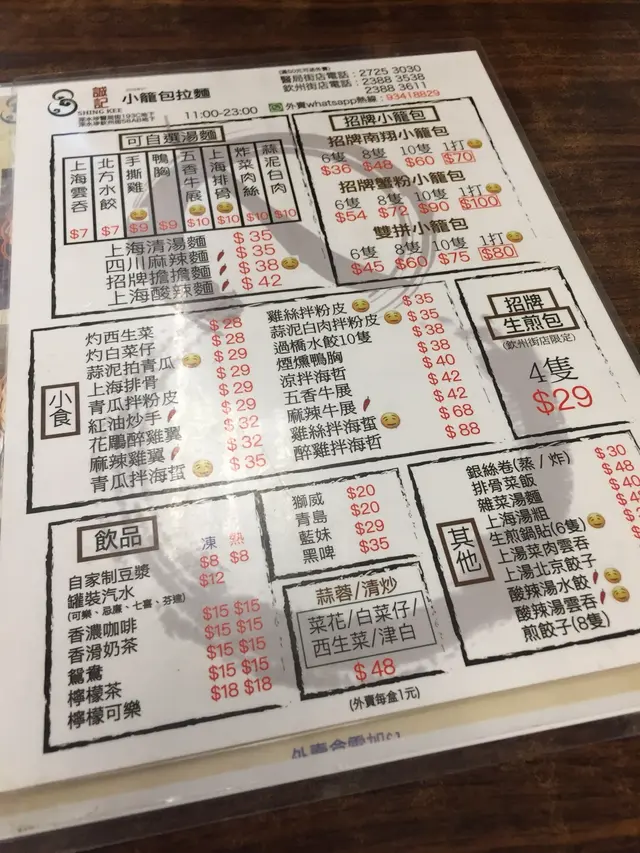 誠記
SHING KEE
小龍包拉麵
11:00-23:00
醫局街店電話：2725 3030
欽州街店電話：2388 3538
2388 3611
外賣whatsapp熱線：93418829
可自選湯麵
上海雲吞 $7
北方水餃 $7
手撕雞 $9
鴨胸 $9
五香牛展 $10
上海排骨 $10
炸菜肉絲 $10
蒜泥白肉 $10
上海清湯麵 $35
四川麻辣麵 $35
招牌擔擔麵 $38
上海酸辣麵 $42
招牌小籠包
招牌南翔小籠包
6隻 8隻 10隻 1打
$36 $48 $60 $70
招牌蟹粉小籠包
6隻 8隻 10隻 1打
$54 $72 $90 $100
雙拼小籠包
6隻 8隻 10隻 1打
$45 $60 $75 $80
小食
灼西生菜 $28
灼白菜仔 $28
蒜泥拍青瓜 $29
上海排骨 $29
青瓜拌粉皮 $29
紅油炒手 $29
花雕醉雞翼 $32
麻辣雞翼 $32
青瓜拌海蜇 $35
雞絲拌粉皮 $35
蒜泥白肉拌粉皮 $35
過橋水餃10隻 $38
煙燻鴨胸 $38
涼拌海哲 $40
五香牛展 $42
麻辣牛展 $42
雞絲拌海蜇 $68
醉雞拌海哲 $88
招牌
生煎包
(欽州街店限定)
4隻
$29
飲品
凍 熱
自家制豆漿 $8 $8
罐裝汽水 $12
(可樂、忌廉、七喜、芬達)
香濃咖啡 $15 $15
香滑奶茶 $15 $15
鴛鴦 $15 $15
檸檬茶 $15 $15
檸檬可樂 $18 $18
獅威 $20
青島 $20
藍妹 $29
黑啤 $35
蒜蓉/清炒
菜花/白菜仔/
西生菜/津白
$48
(外賣每盒1元)
其他
銀絲卷(蒸/炸) $30
排骨菜飯 $48
雜菜湯麵
上海湯粗
生煎鍋貼(6隻)
上湯菜肉雲吞
上湯北京餃子
酸辣湯水餃
酸辣湯雲吞
煎餃子(8隻)